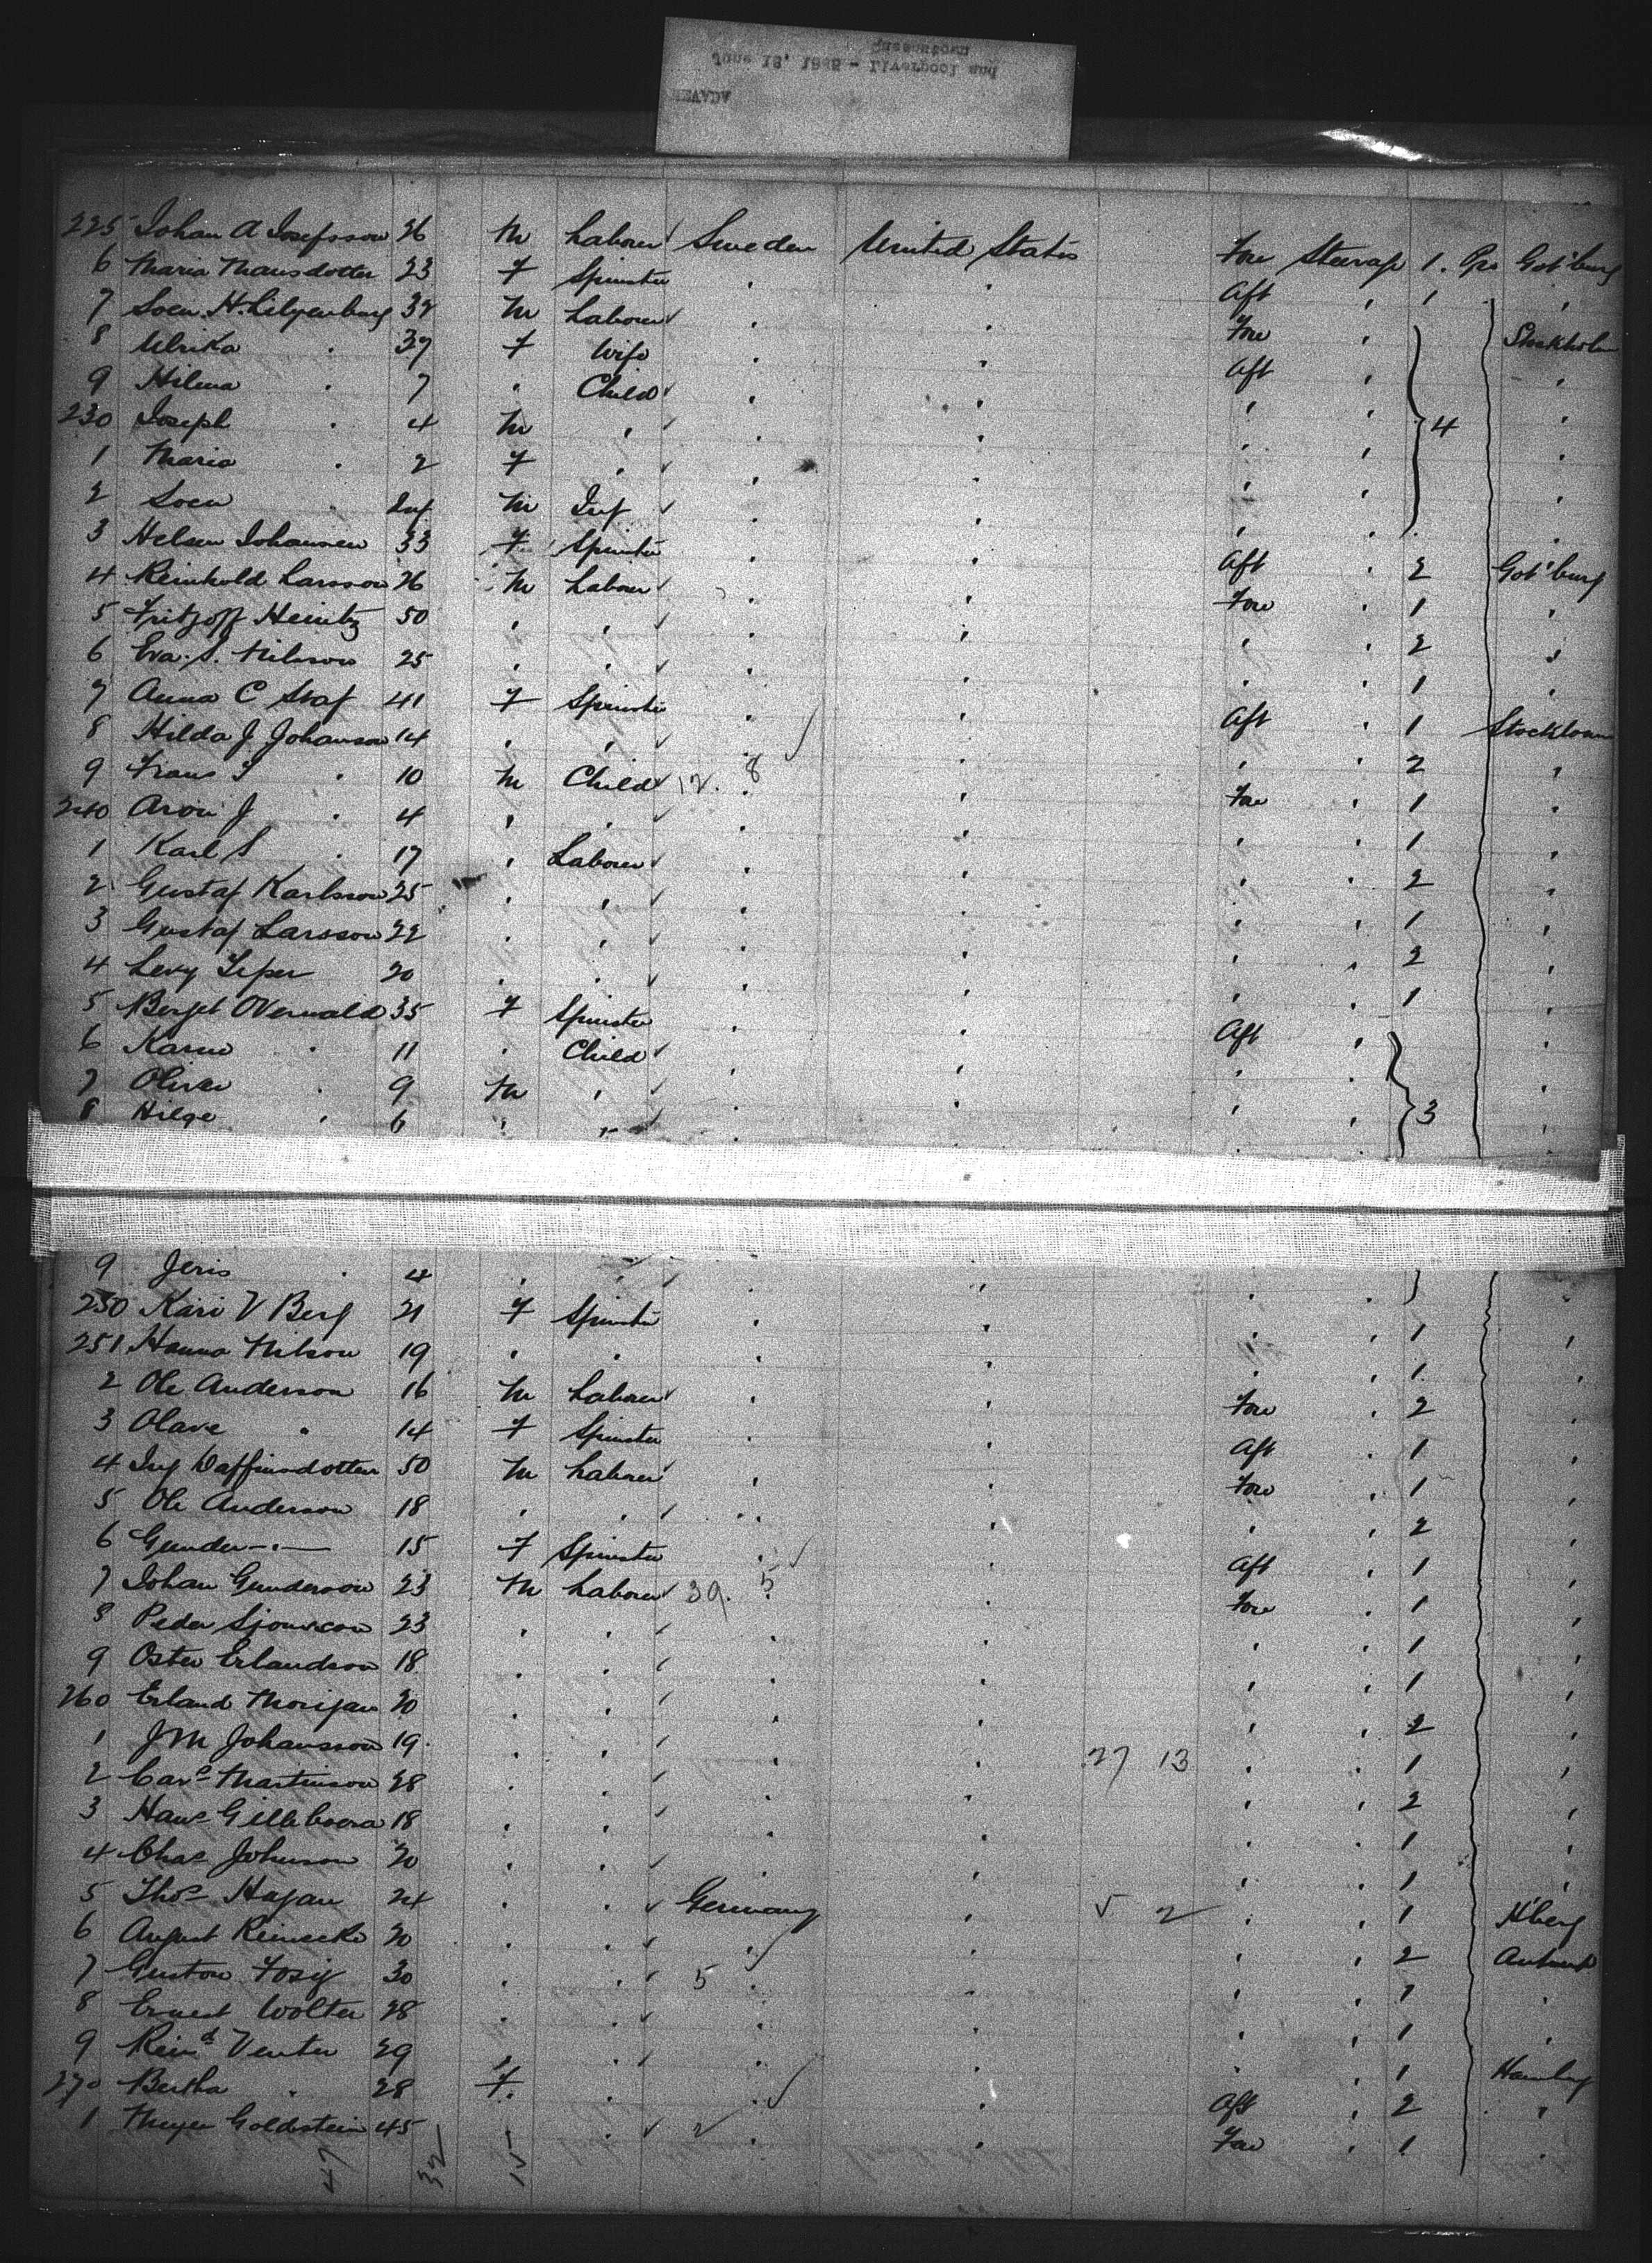 Queenstown
June 12, 1882 - Liverpool and
NEVADA
225 Johan A Josefsson 26 M Laborer Sweden United States Fore Steerage 1. Pce Got'burg
6 Maria Mansdotter 23 F Spinster " " Aft " 1 "
7 Soen. H. Lilyenburg 32 M Laborer " " Fore " Stockholm
8 Ulrika " 37 F Wife " " Aft " "
9 Hilma " 7 " Child " " " " "
230 Joseph " 4 M " " " " " 4 "
1 Maria " 2 F " " " " " "
2 Soen " Inf M Inf " " " " "
3 Helsen Johansen 33 F Spinster " " Aft " 2 Got'burg
4 Reinhold Larsson 26 M Laborer " " Fore " 1 "
5 Fritzoff Heintz 50 " " " " " " 2 "
6 Eva. S. Nilsson 25 " " " " " " 1 "
7 Anna C Staf 41 F Spinster " " Aft " 1 Stockloam
8 Hilda J Johanson 14 " " " " " " 2 "
9 Frans S " 10 M Child 12. 8 " Fore " 1 "
240 Aron J " 4 " " " " " " 1 "
1 Karl S " 17 " Laborer " " " " 2 "
2 Gustaf Karlsson 25 " " " " " " 1 "
3 Gustaf Larsson 22 " " " " " " 2 "
4 Levy Leper 20 " " " " " " 1 "
5 Berget Overwald 35 F Spinster " " Aft " "
6 Karin " 11 " Child " " " " "
7 Oliver " 9 M " " " " " 3 "
8 Hilge " 6 " " " " " " "
9 Jeris " 4 " " " " "
250 Kari V Berg 21 F Spinster " " " " 1 "
251 Hanna Nilson 19 " " " " " " 1 "
2 Ole Anderson 16 M Laborer " " Fore " 2 "
3 Olave " 14 F Spinster " " Aft " 1 "
4 Ing Daffinsdotter 50 M Laborer " " Fore " 1 "
5 Ole Anderson 18 " " " " " " 2 "
6 Gunder — " — 15 F Spinster " " Aft " 1 "
7 Johan Gunderson 23 M Laborer 39. 5 " Fore " 1 "
8 Peder 23 " " " " " " 1 "
9 Oster Erlandson 18 " " " " " " 1 "
260 Erland 20 " " " " " " 2 "
1 J M Johansson 19 " " " " 27 13 " " 1 "
2 Carc Martinson 28 " " " " " " 2 "
3 Hans 18 " " " " " " 1 "
4 Chas Johnson 20 " " " " " " 1 "
5 Thos Hagan 24 " " Germany " 5 2 " " 1 H'berg
6 August Reinecke 20 " " " " " " 2 Antwerp
7 Gustow 30 " " 5 " " " " 1 "
8 Ernest Wolter 28 " " " " " " 1 "
9 Reind Venter 29 " " " " " " 1 Hamburg
270 Bertha " 28 F " " " Aft " 2 "
1 Meyer Goldstein 45 " " 2 " Fore " 1 "
47 32 15